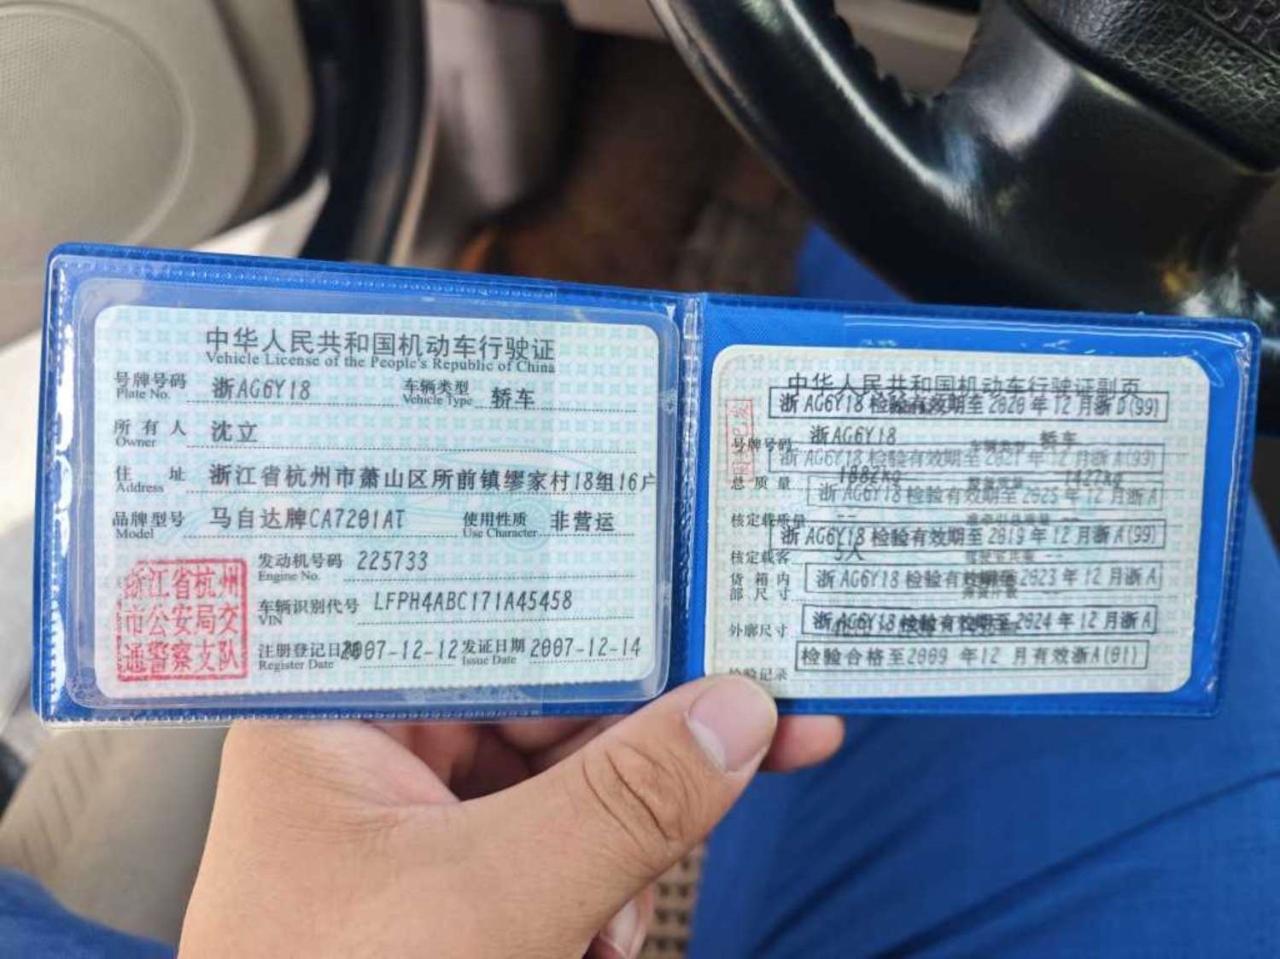 中华人民共和国机动车行驶证
Vehicle License of the People's Republic of China
号牌号码 浙AG6Y18 车辆类型 轿车
Plate No. Vehicle Type
所有人 沈立
Owner
住址 浙江省杭州市萧山区所前镇缪家村18组16户
Address
品牌型号 马自达牌CA7201AT 使用性质 非营运
Model Use Character
发动机号码 225733
Engine No.
车辆识别代号 LFPH4ABC171A45458
VIN
注册登记日期 2007-12-12 发证日期 2007-12-14
Register Date Issue Date
浙江省杭州
市公安局交
通警察支队
中华人民共和国机动车行驶证副页
浙AG6Y18检验有效期至2020年12月浙D(99)
号牌号码 浙AG6Y18 车辆类型 轿车
浙AG6Y18检验有效期至 年12月浙A(99)
总质量 1882kg 1427kg
浙AG6Y18检验有效期至2025年12月浙A
核定载质量 --
浙AG6Y18检验有效期至2019年12月浙A(99)
核定载客 5人 --
货箱内部尺寸
浙AG6Y18检验有效期至2023年12月浙A
外廓尺寸
浙AG6Y18检验有效期至2024年12月浙A
检验合格至2009年12月有效浙A(01)
检验记录